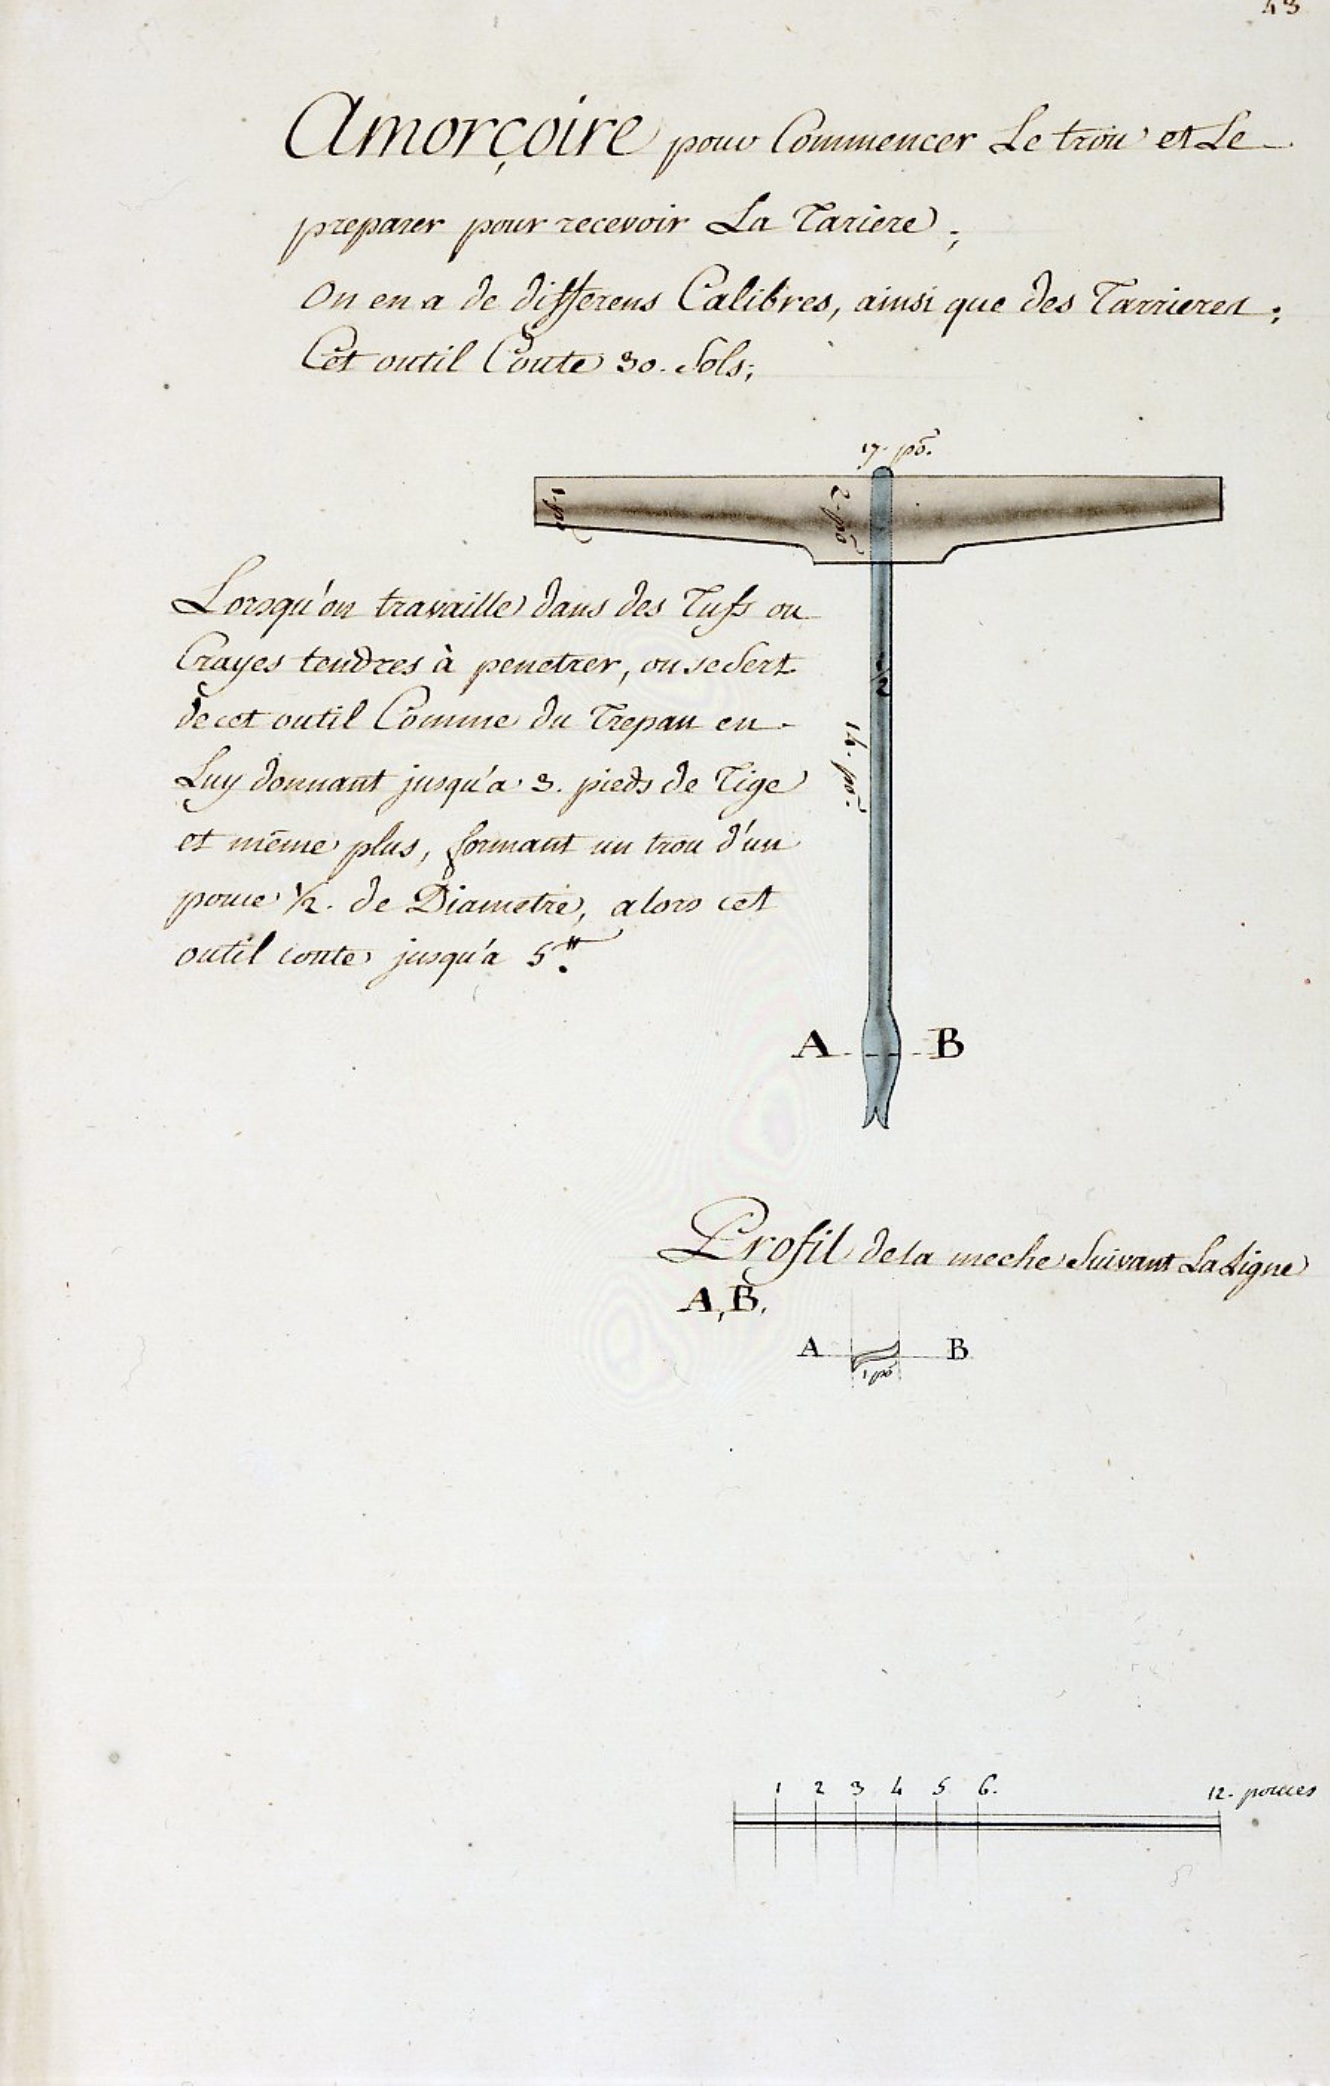 43
Amorçoire pour Commencer Le trou et Le
preparer pour recevoir La Tariere;
On en a de differens Calibres, ainsi que des Tarrieres;
Cet outil Coute 30. Sols;
17. po.
1. po
2. po
Lorsqu'on travaille dans des Tufs ou
Crayes tendres à penetrer, on se Sert
de cet outil Comme du Trepan en
Luy donnant jusqu'a 3. pieds de Tige
et même plus, formant un trou d'un
pouce 1/2. de Diametre, alors cet
outil coute jusqu'a 5.tt
1/2
14. po.
A B
Profil de la meche Suivant La Ligne
A, B.
A B
1 po
1 2 3 4 5 6. 12. pouces